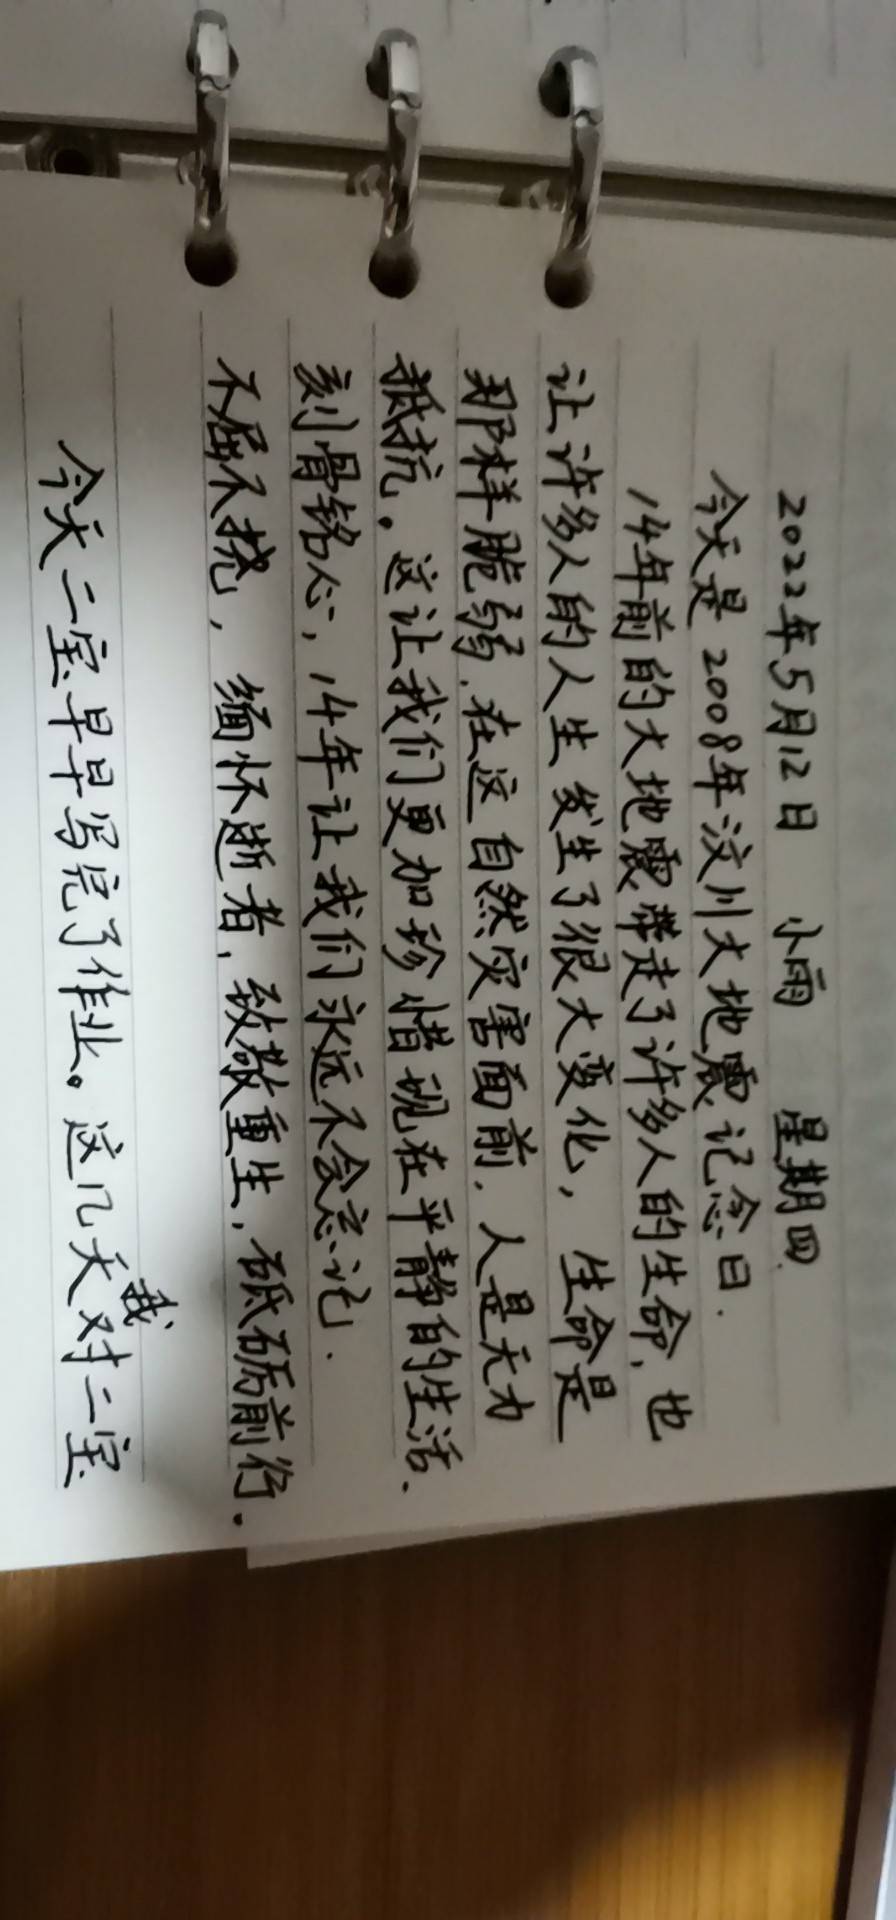 2022年5月12日 小雨 星期四.
今天是2008年汶川大地震记念日.
14年前的大地震带走了许多人的生命,也
让许多人的人生发生了很大变化,生命是
那样脆弱.在这自然灾害面前.人是无力
抵抗。这让我们更加珍惜现在平静的生活.
刻骨铭心,14年让我们永远不会忘记.
不屈不挠,缅怀逝者,致敬重生,砥砺前行.
今天二宝早早写完了作业。这几天我对二宝